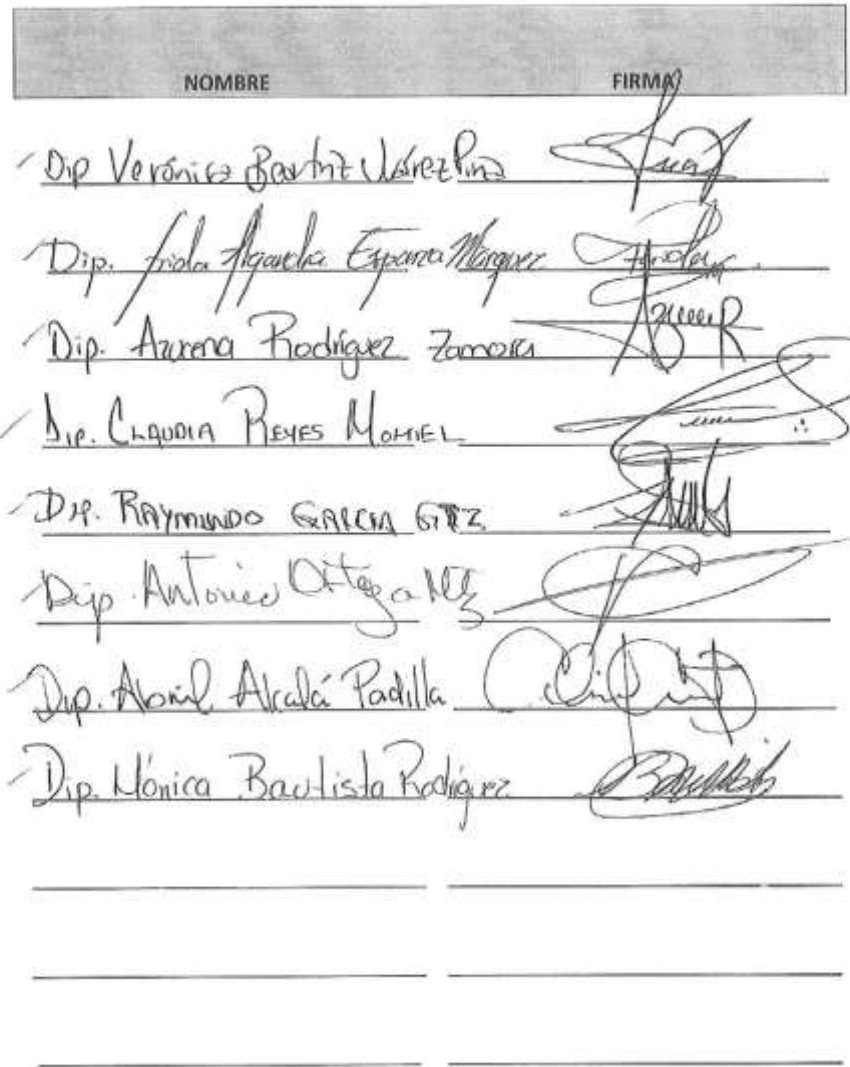 NOMBRE FIRMA
Dip Verónica Beatriz Juárez Piña
Dip. Frida Alejandra Esparza Márquez Frida
Dip. Azucena Rodríguez Zamora
Dip. CLAUDIA REYES MONTIEL
DIP. RAYMUNDO GARCIA GTZ
Dip. Antonio Ortega Mtz
Dip. Abril Alcalá Padilla
Dip. Mónica Bautista Rodríguez Bautista